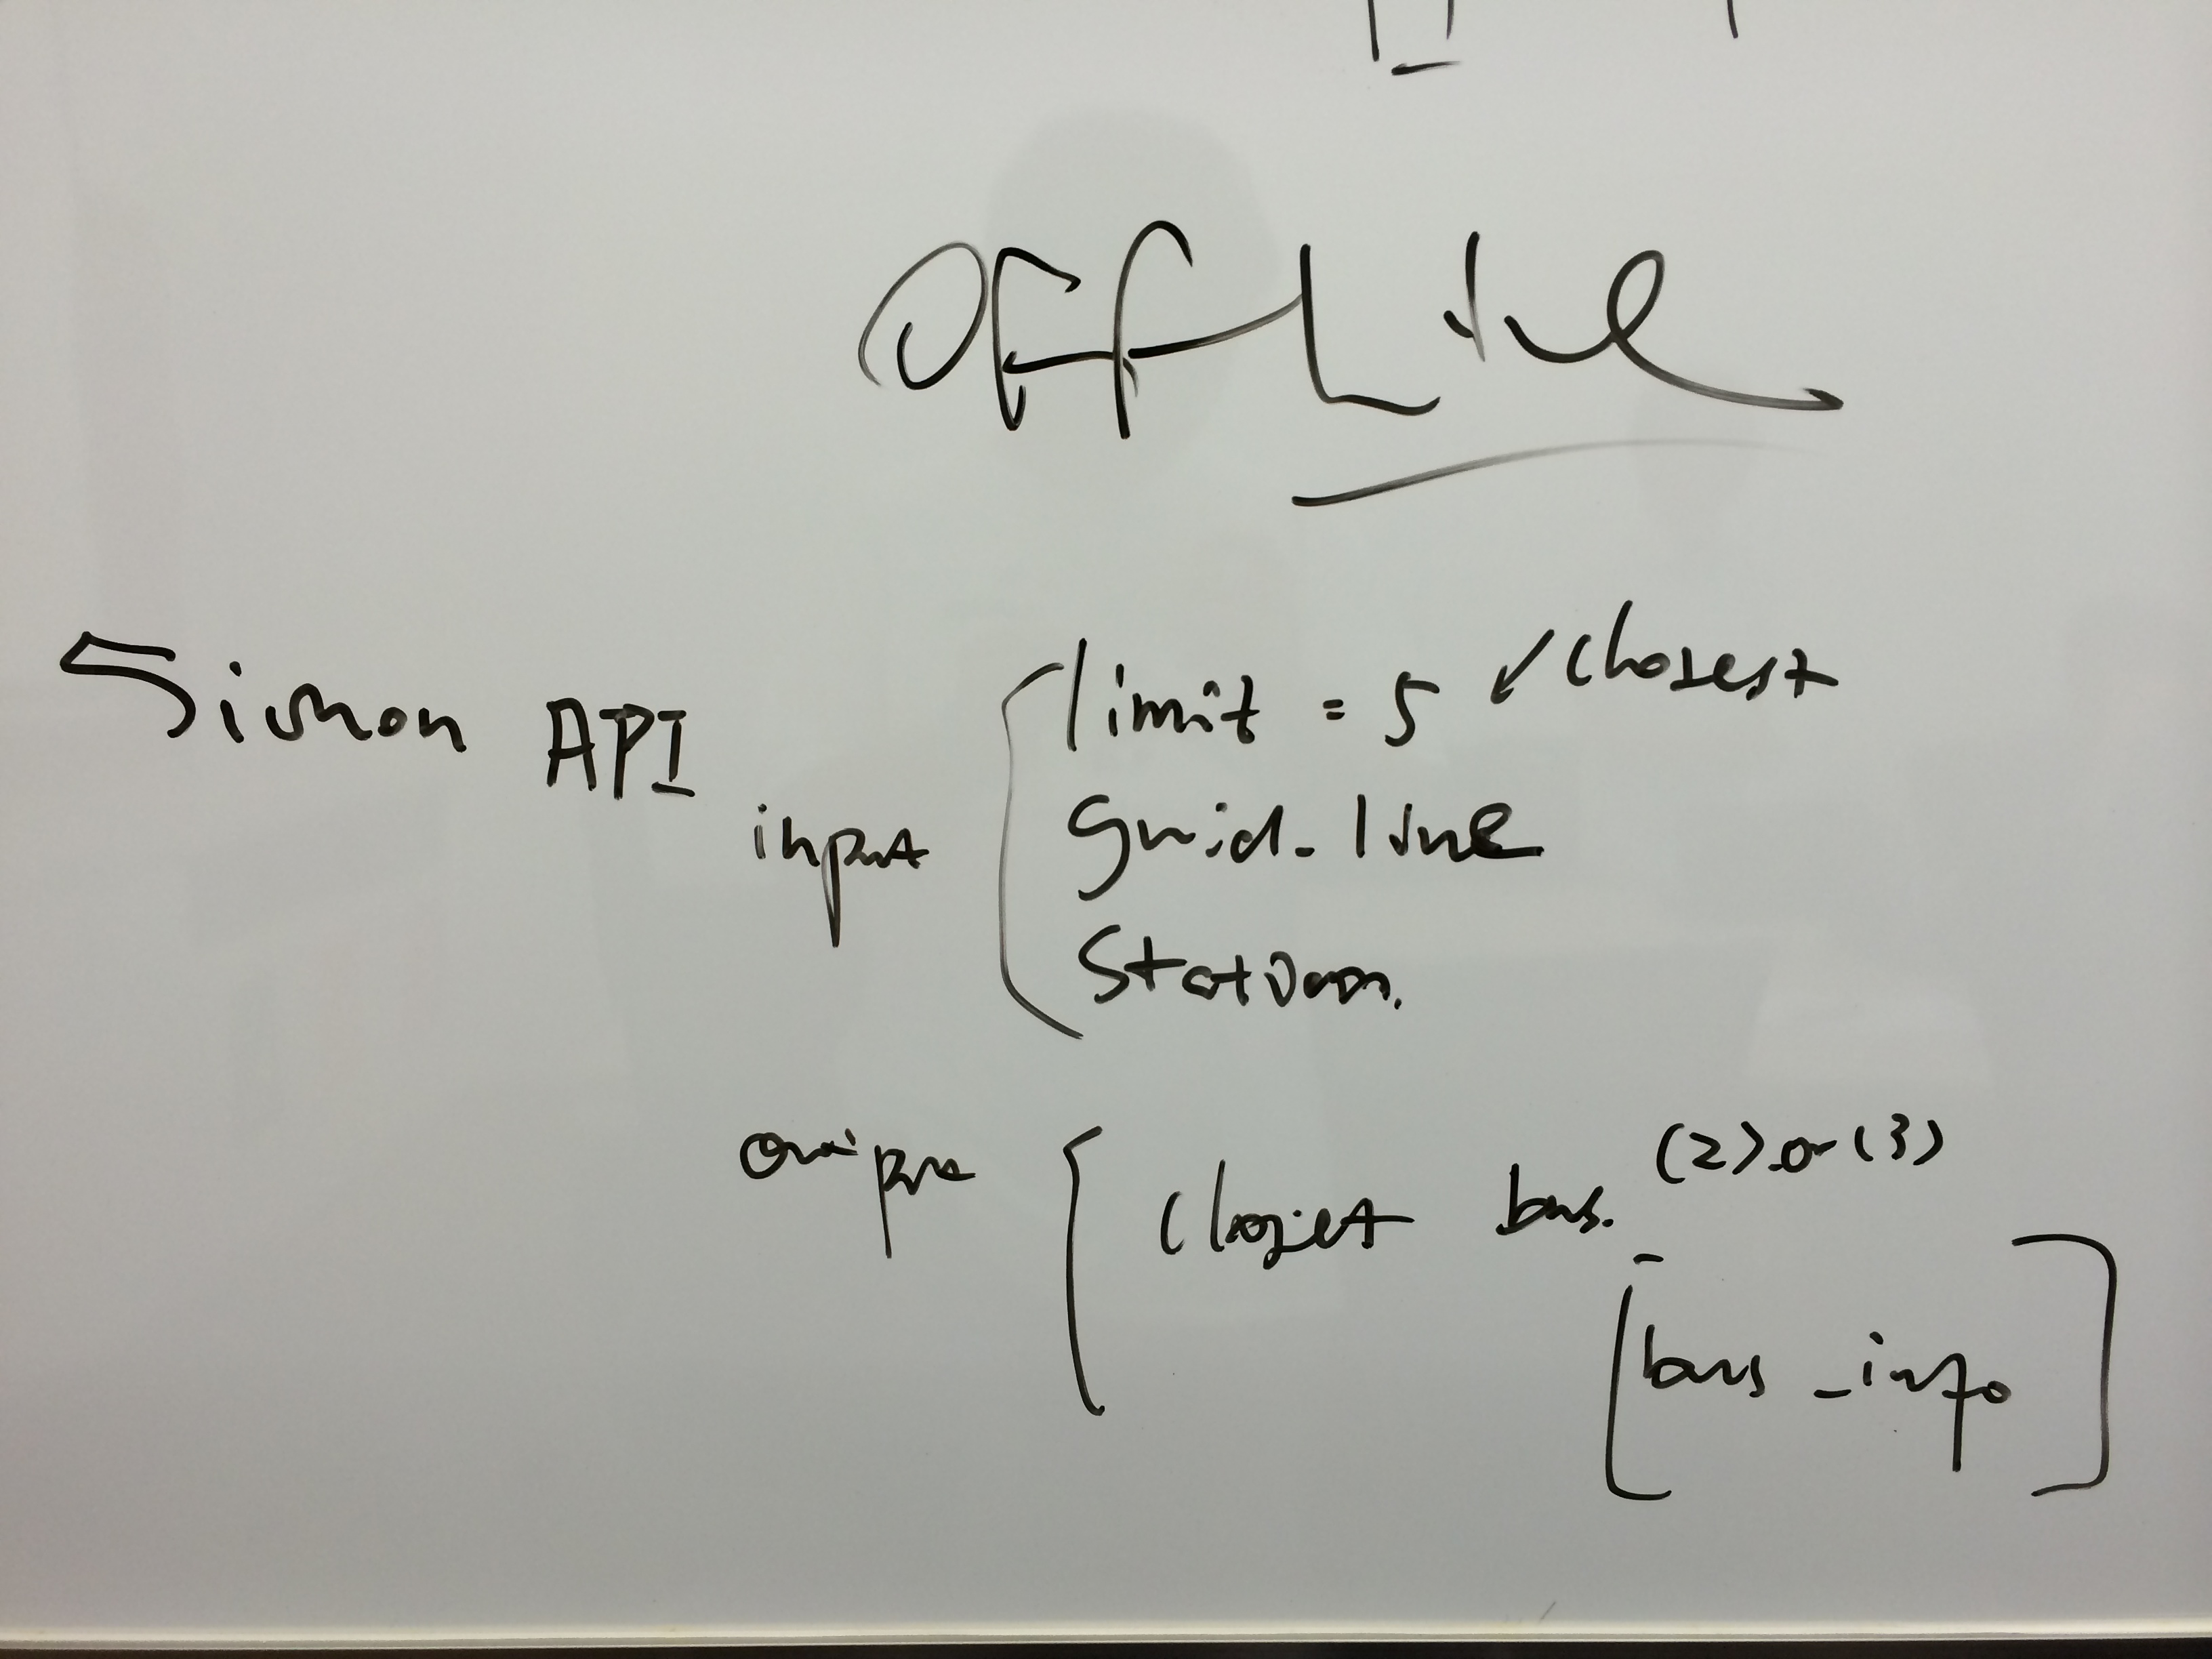 OFFLine
Simon API
input
limit = 5 ↙ closest
guid_line
Station.
output
closet bus. (2) or (3)
[bus_info]